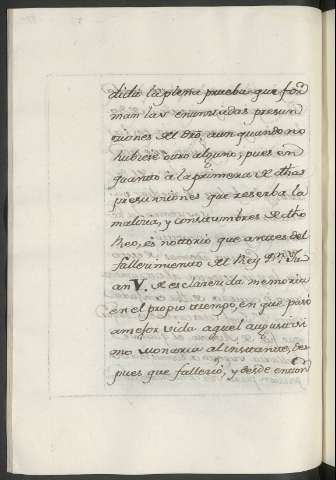 dida la plena prueba que for
man las enunsiadas presun
ciones del Reo, aun quando no
hubiese otro alguno; pues en
quanto a la primera de dhas
presunciones que reserba la
malicia, y constumbres de dho
Reo, es nottorio que antes del
fallecimiento del Rey Dn. Ju
an V. de esclarecida memoria
en el propio tiempo, en que paso
amejor vida aquel augustisi
mo Monarca al instante, des
pues que fallecio, y desde enton